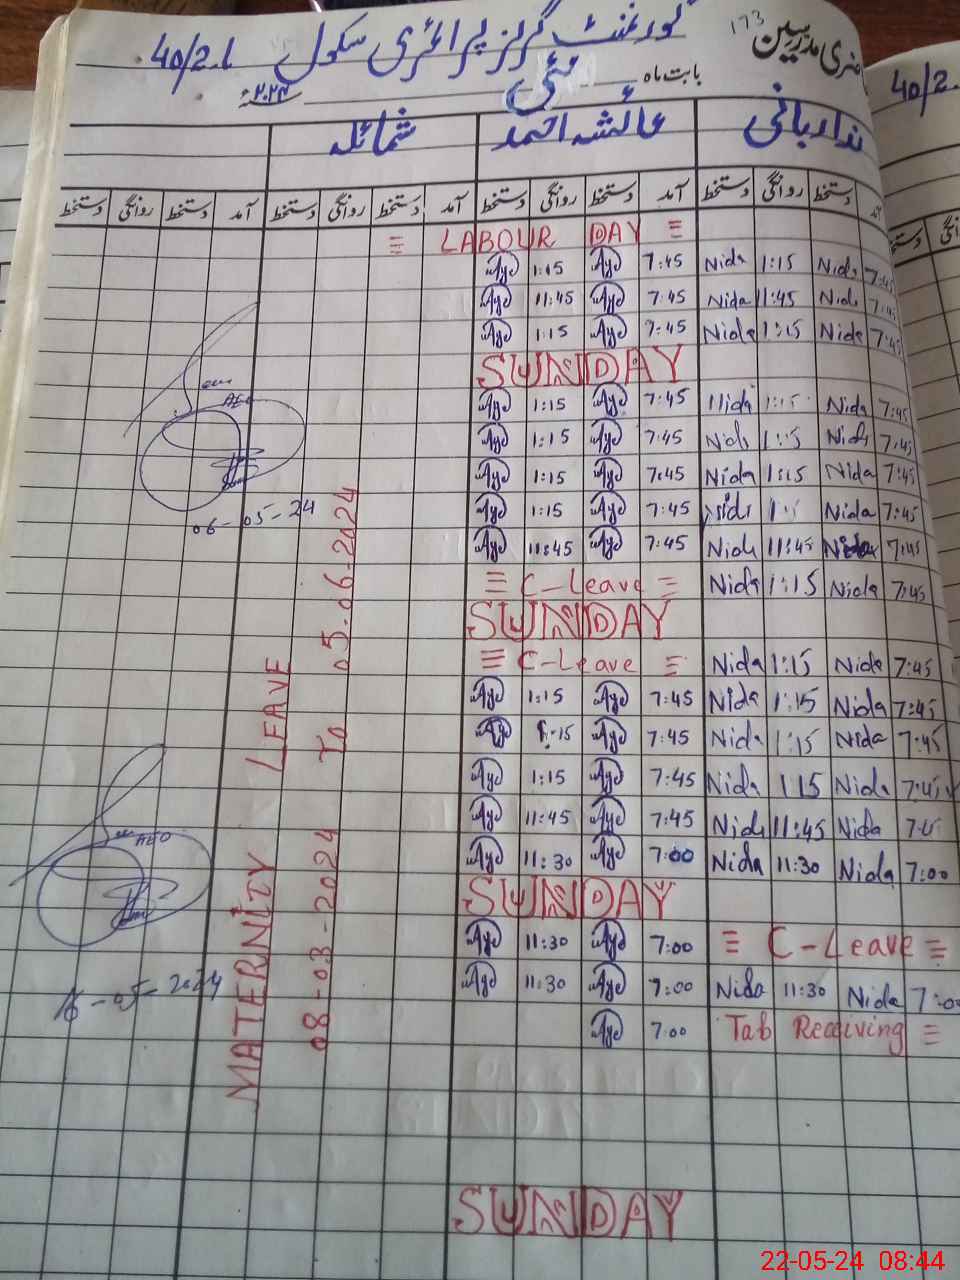 173
حاضری مدرسین گورنمنٹ گرلز پرائمری سکول 40/2.L
بابت ماہ مئی ۲۰۲۴ء
ندا ربانی عائشہ احمد شمائلہ
آمد دستخط روانگی دستخط آمد دستخط روانگی دستخط آمد دستخط روانگی دستخط آمد دستخط روانگی دستخط
≡ LABOUR DAY ≡
Aye 1:15 Aye 7:45 Nida 1:15 Nida 7:45
Aye 11:45 Aye 7:45 Nida 11:45 Nida 7:45
Aye 1:15 Aye 7:45 Nida 1:15 Nida 7:45
SUNDAY
Aye 1:15 Aye 7:45 Nida 1:15 Nida 7:45
Aye 1:15 Aye 7:45 Nida 1:15 Nida 7:45
Aye 1:15 Aye 7:45 Nida 1:15 Nida 7:45
Aye 1:15 Aye 7:45 Nida Nida 7:45
Aye 11:45 Aye 7:45 Nida 11:45 Nida 7:45
≡ C-Leave ≡ Nida 1:15 Nida 7:45
SUNDAY
≡ C-Leave ≡ Nida 1:15 Nida 7:45
Aye 1:15 Aye 7:45 Nida 1:15 Nida 7:45
Aye 1:15 Aye 7:45 Nida 1:15 Nida 7:45
Aye 1:15 Aye 7:45 Nida 1:15 Nida 7:45
Aye 11:45 Aye 7:45 Nida 11:45 Nida 7:45
Aye 11:30 Aye 7:00 Nida 11:30 Nida 7:00
SUNDAY
Aye 11:30 Aye 7:00 ≡ C-Leave ≡
Aye 11:30 Aye 7:00 Nida 11:30 Nida 7:00
Aye 7:00 Tab Receiving ≡
SUNDAY
MATERNITY LEAVE
08-03-2024 To 05.06.2024
AEO
06-05-24
AEO
16-05-2024
40/2.
22-05-24 08:44